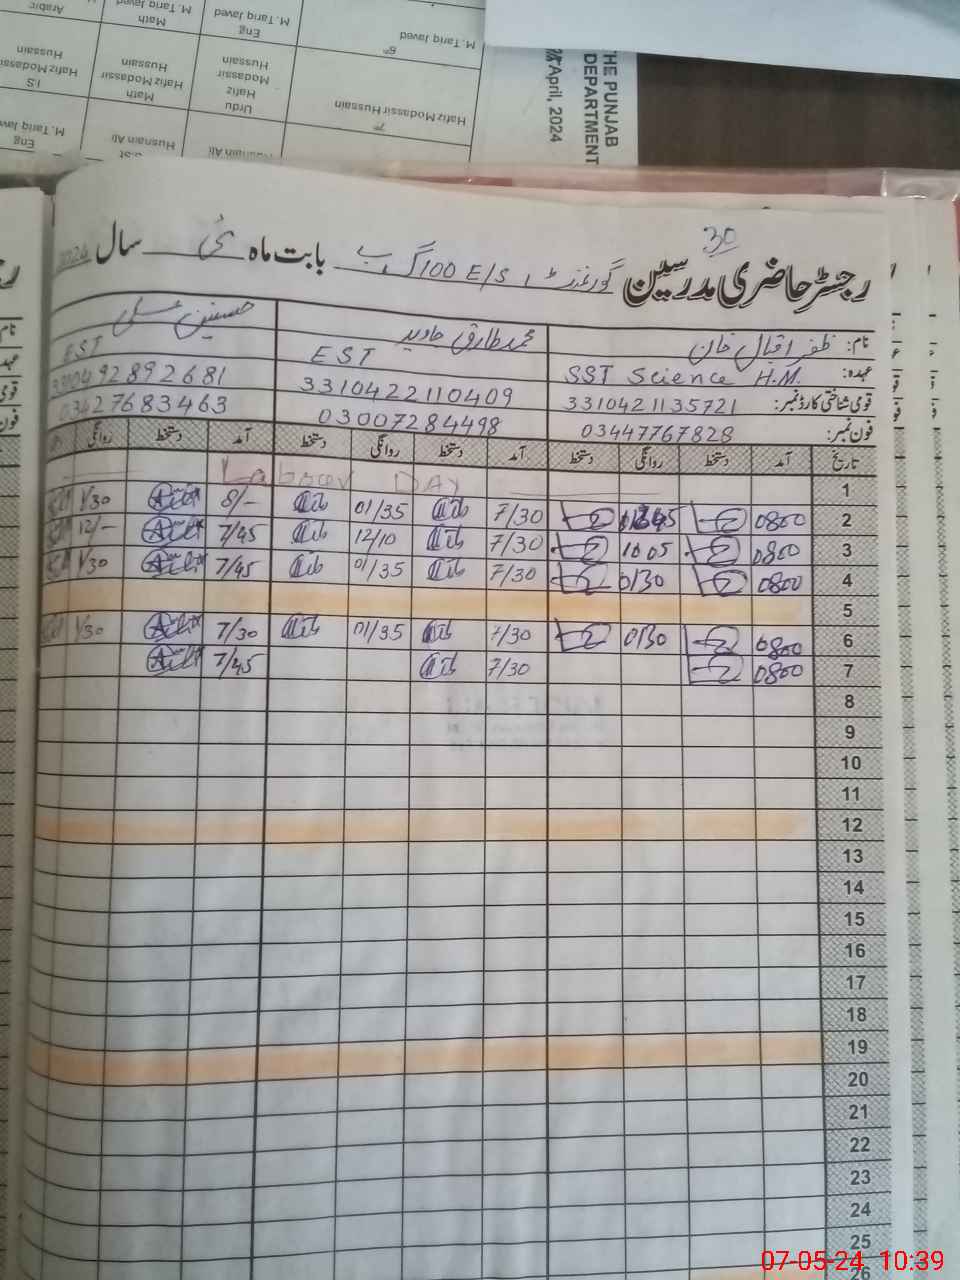 M. Tariq Javed
Eng
M. Tariq Javed
Math
M. Tariq Javed
Arabic
6th
Hafiz Modassir Hussain
Urdu
Hafiz
Modassir
Hussain
Math
Hafiz Modassir
Hussain
I.S
Hafiz Modassir
Hussain
7th
Husnain Ali
Husnain Ali
Eng
M. Tariq Javed
THE PUNJAB
DEPARTMENT
April, 2024
30
رجسٹر حاضری مدرسین گورنمنٹ E/S 100 گ ب بابت ماہ مئی سال 2024
نام: ظفر اقبال خان محمد طارق جاوید حسنین علی
عہدہ: SST Science H.M. EST EST
قومی شناختی کارڈ نمبر: 3310421135721 3310422110409 3310492892681
فون نمبر: 03447767828 03007284498 03427683463
تاریخ آمد دستخط روانگی دستخط آمد دستخط روانگی دستخط آمد دستخط روانگی
1 Labour DAY
2 0800 7/30 01/35 8/- 1/30
3 0800 1005 7/30 12/10 7/45 12/-
4 0800 0130 7/30 01/35 7/45 1/30
5
6 0800 0130 7/30 01/35 7/30 1/30
7 0800 7/30 7/45
8
9
10
11
12
13
14
15
16
17
18
19
20
21
22
23
24
25
26
07-05-24 10:39